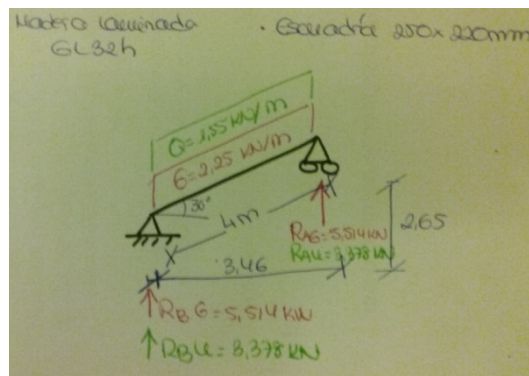 Madera laminada
GL32h
· Escuadría 250x220mm
Q=1,55 KN/m
G=2,25 KN/m
30°
4m
RAG=5,514KN
RAU=3,378KN
2,65
3,46
RBG=5,514KN
RBU=3,378KN